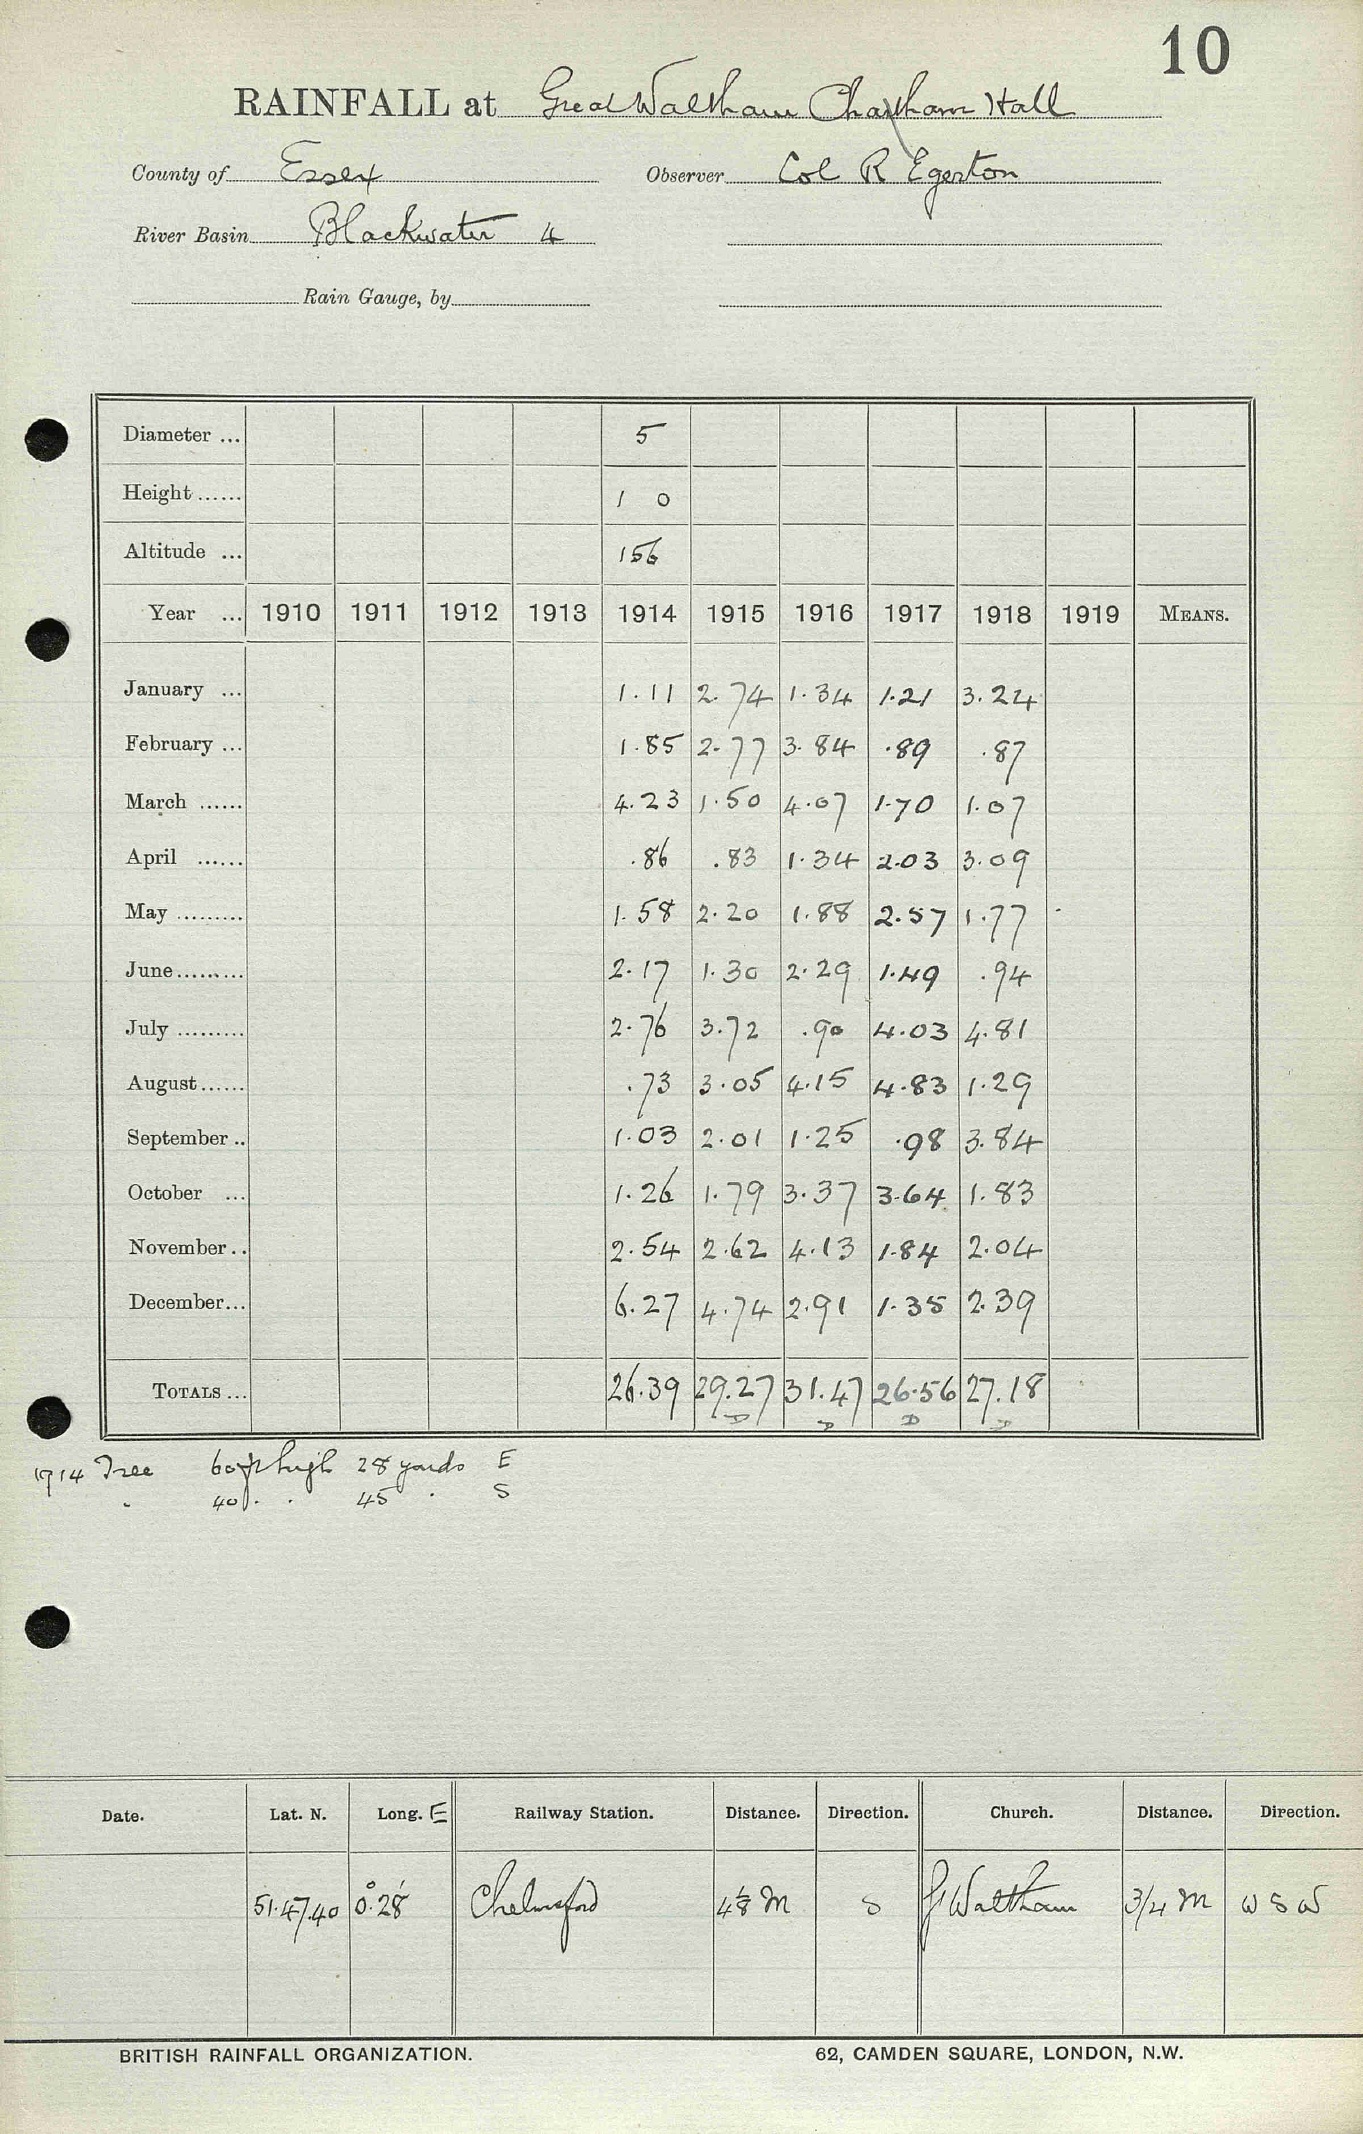 10
RAINFALL at Great Waltham Chatham Hall
County of Essex Observer Col R Egerton
River Basin Blackwater 4
Rain Gauge, by
Diameter ... 5
Height ...... 1 0
Altitude ... 156
Year ... 1910 1911 1912 1913 1914 1915 1916 1917 1918 1919 MEANS.
January ... 1.11 2.74 1.34 1.21 3.24
February ... 1.85 2.77 3.84 .89 .87
March ...... 4.23 1.50 4.07 1.70 1.07
April ...... .86 .83 1.34 2.03 3.09
May ......... 1.58 2.20 1.88 2.57 1.77
June ......... 2.17 1.30 2.29 1.49 .94
July ......... 2.76 3.72 .90 4.03 4.81
August ...... .73 3.05 4.15 4.83 1.29
September .. 1.03 2.01 1.25 .98 3.84
October ... 1.26 1.79 3.37 3.64 1.83
November .. 2.54 2.62 4.13 1.84 2.04
December ... 6.27 4.74 2.91 1.35 2.39
TOTALS ... 26.39 29.27 31.47 26.56 27.18
D D D D
1914 Tree 60 ft high 28 yards E
" 40 " " 45 " S
Date. Lat. N. Long. E Railway Station. Distance. Direction. Church. Distance. Direction.
51.47.40 0°.28' Chelmsford 4 1/8 M S Gt Waltham 3/4 M W S W
BRITISH RAINFALL ORGANIZATION. 62, CAMDEN SQUARE, LONDON, N.W.